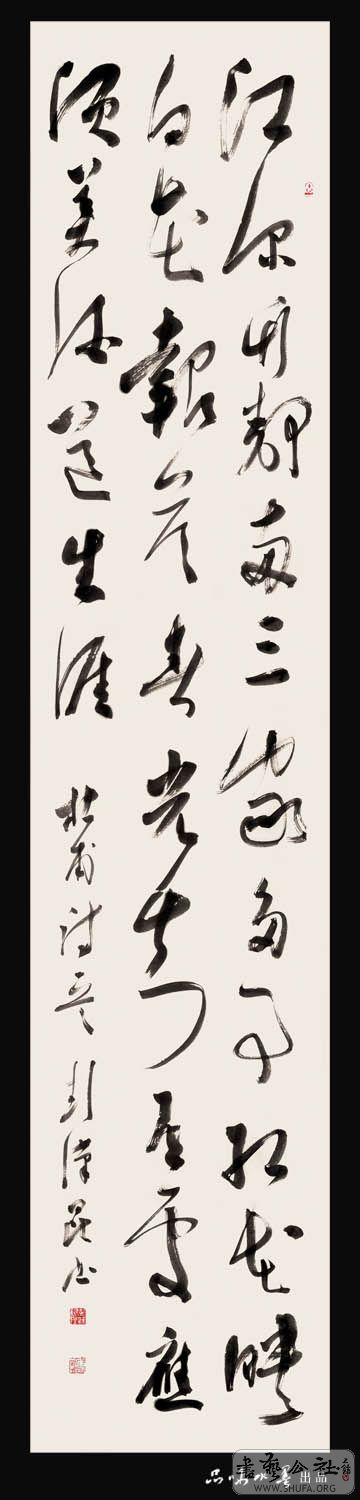 江深竹靜兩三家多事紅花映
白花報答春光知有處應
須美酒送生涯
杜甫詩意
品味水墨 出品
書藝公社
WWW.SHUFA.ORG